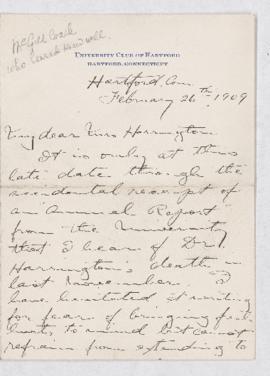 McGill Coach
who loved him well.
UNIVERSITY CLUB OF HARTFORD
HARTFORD, CONNECTICUT
Hartford, Conn
February 26th, 1909
My dear Miss Harrington
It is only at this
late date through the
accidental receipt of
an Annual Report
from the University
that I hear of Dr.
Harrington's death in
last November. I
have hesitated at writing
for fear of bringing
to mind but cannot
refrain from extending to